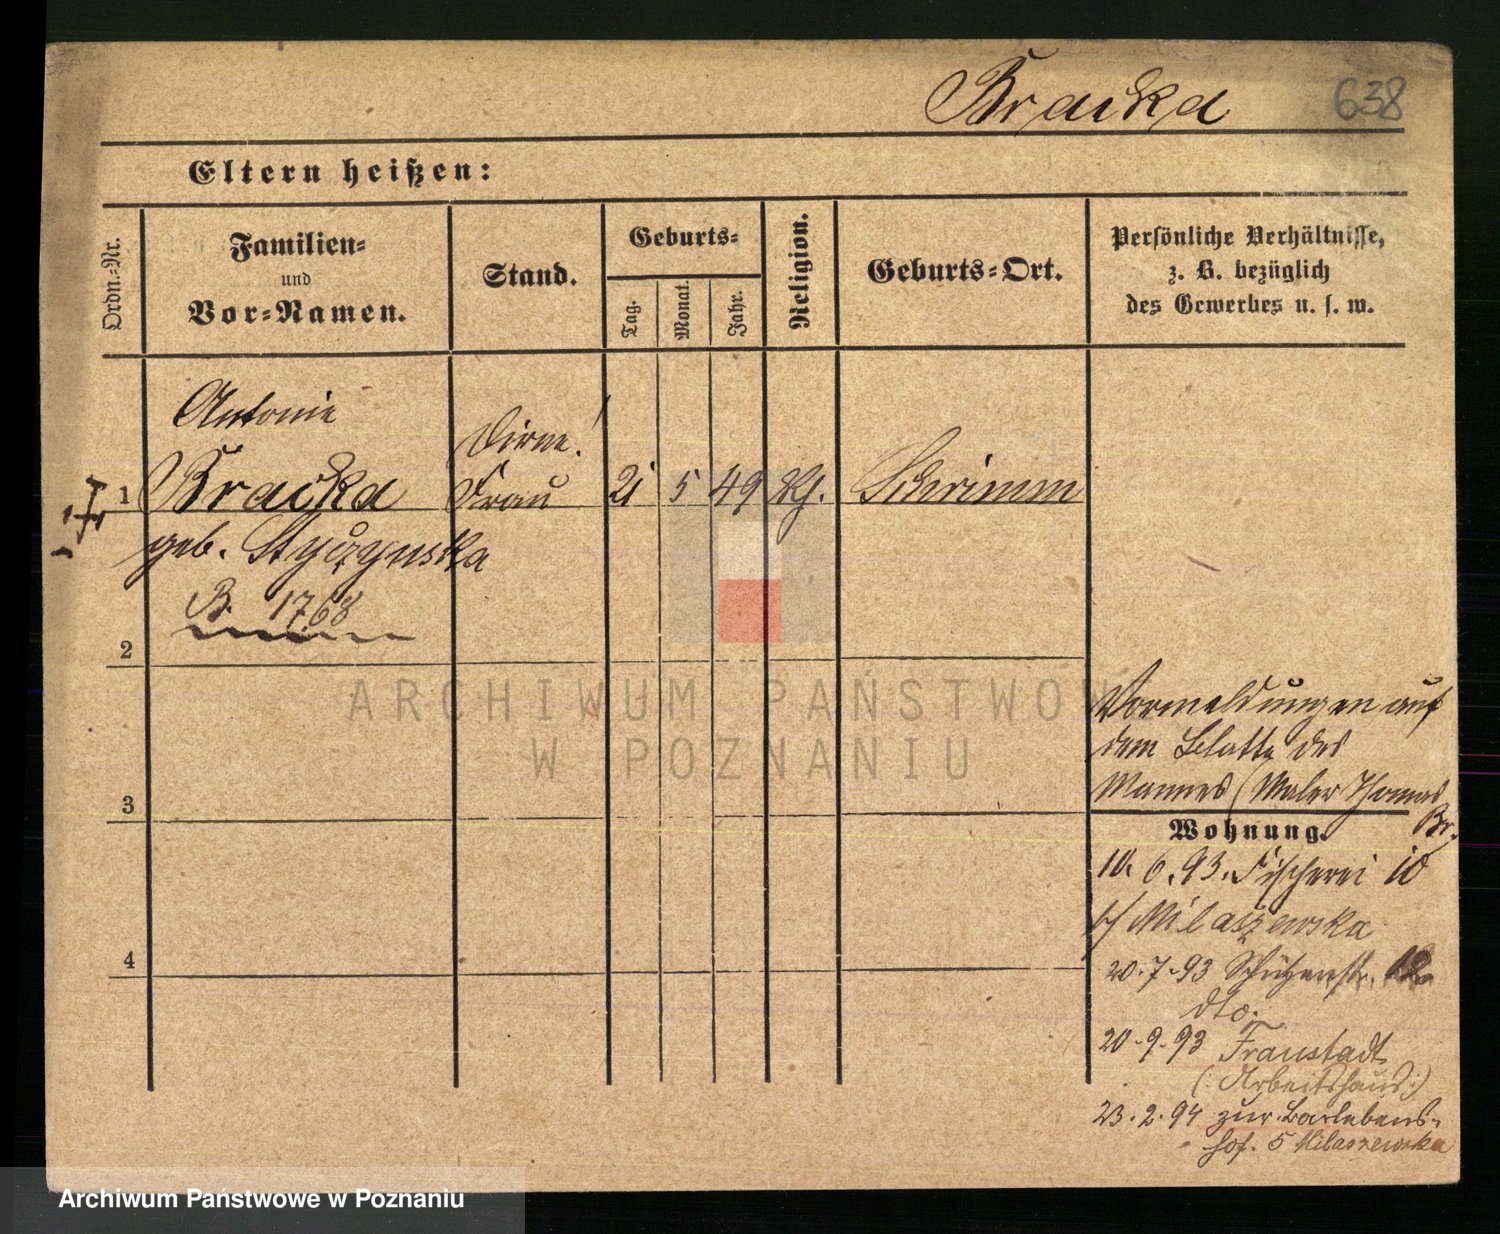 Bracka 638
Eltern heißen:
Ordn.-Nr.
Familien-
und
Vor-Namen.
Stand.
Geburts-
Tag.
Monat.
Jahr.
Religion.
Geburts-Ort.
Persönliche Verhältnisse,
z. B. bezüglich
des Gewerbes u. s. w.
Antonie
Dirne!
1 Bracka Frau 21 5 49 kth. Schrimm
geb. Styczynska
B. 1768
2
Vormeldungen auf
dem Blatte des
Mannes (Maler Thomas
Br.
3
Wohnung.
10. 6. 93. Fischerei 10
b/ Milaszewska
4
20.7.93 Schützenstr. 12
dto.
20.9.93 Fraustadt
(: Arbeitshaus :)
23.2.94 zur. Barlebens-
hof. 5 Milaszewska
ARCHIWUM PAŃSTWOWE
W POZNANIU
Archiwum Państwowe w Poznaniu